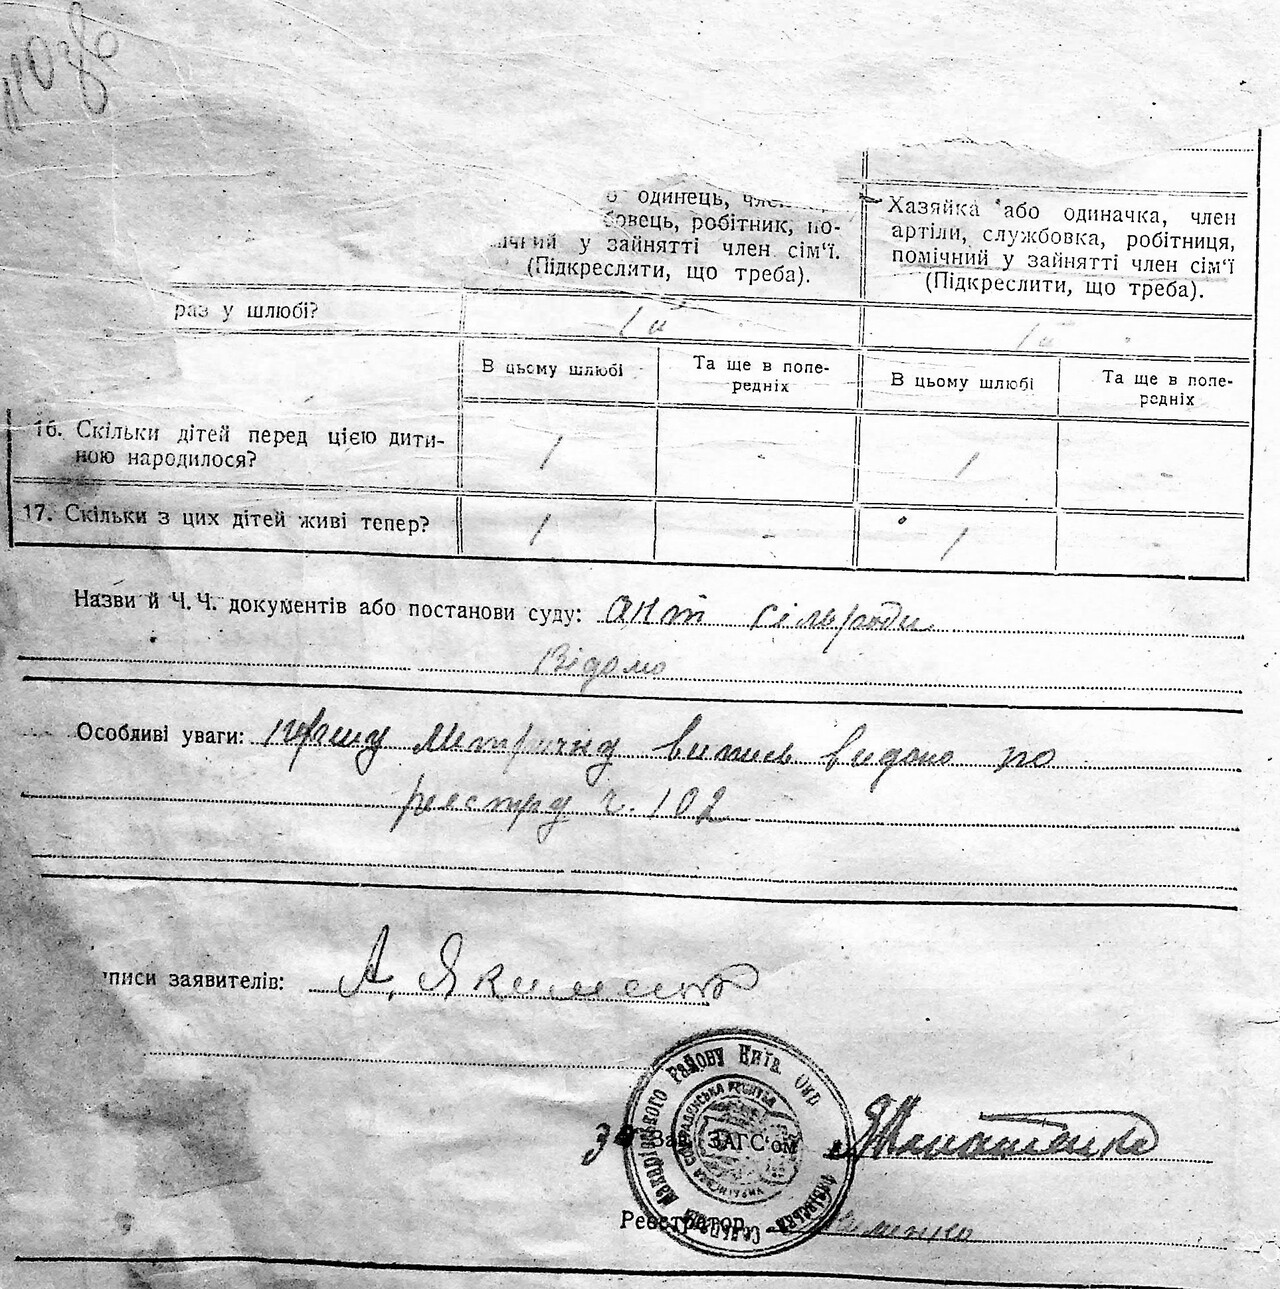 одинець, член
бовець, робітник, по-
чний у зайнятті член сім'ї.
(Підкреслити, що треба).
Хазяйка або одиначка, член
артіли, службовка, робітниця,
помічний у зайнятті член сім'ї
(Підкреслити, що треба).
раз у шлюбі?
В цьому шлюбі
Та ще в попе-
редніх
В цьому шлюбі
Та ще в попе-
редніх
16. Скільки дітей перед цією дити-
ною народилося?
1 - 1 -
17. Скільки з цих дітей живі тепер?
1 - 1 -
Назви й Ч.Ч. документів або постанови суду: акт сільради
Відомо
Особливі уваги: першу метричну випись видано по
реєстру ч. 102
писи заявителів: А. Якименко
Макарівського Району Київ. Окр.
Сільська
УКРАЇНСЬКА СОЦ РАДЯНСЬКА РЕСПУБЛІКА
за Зав. ЗАГС'ом
Реєстратор